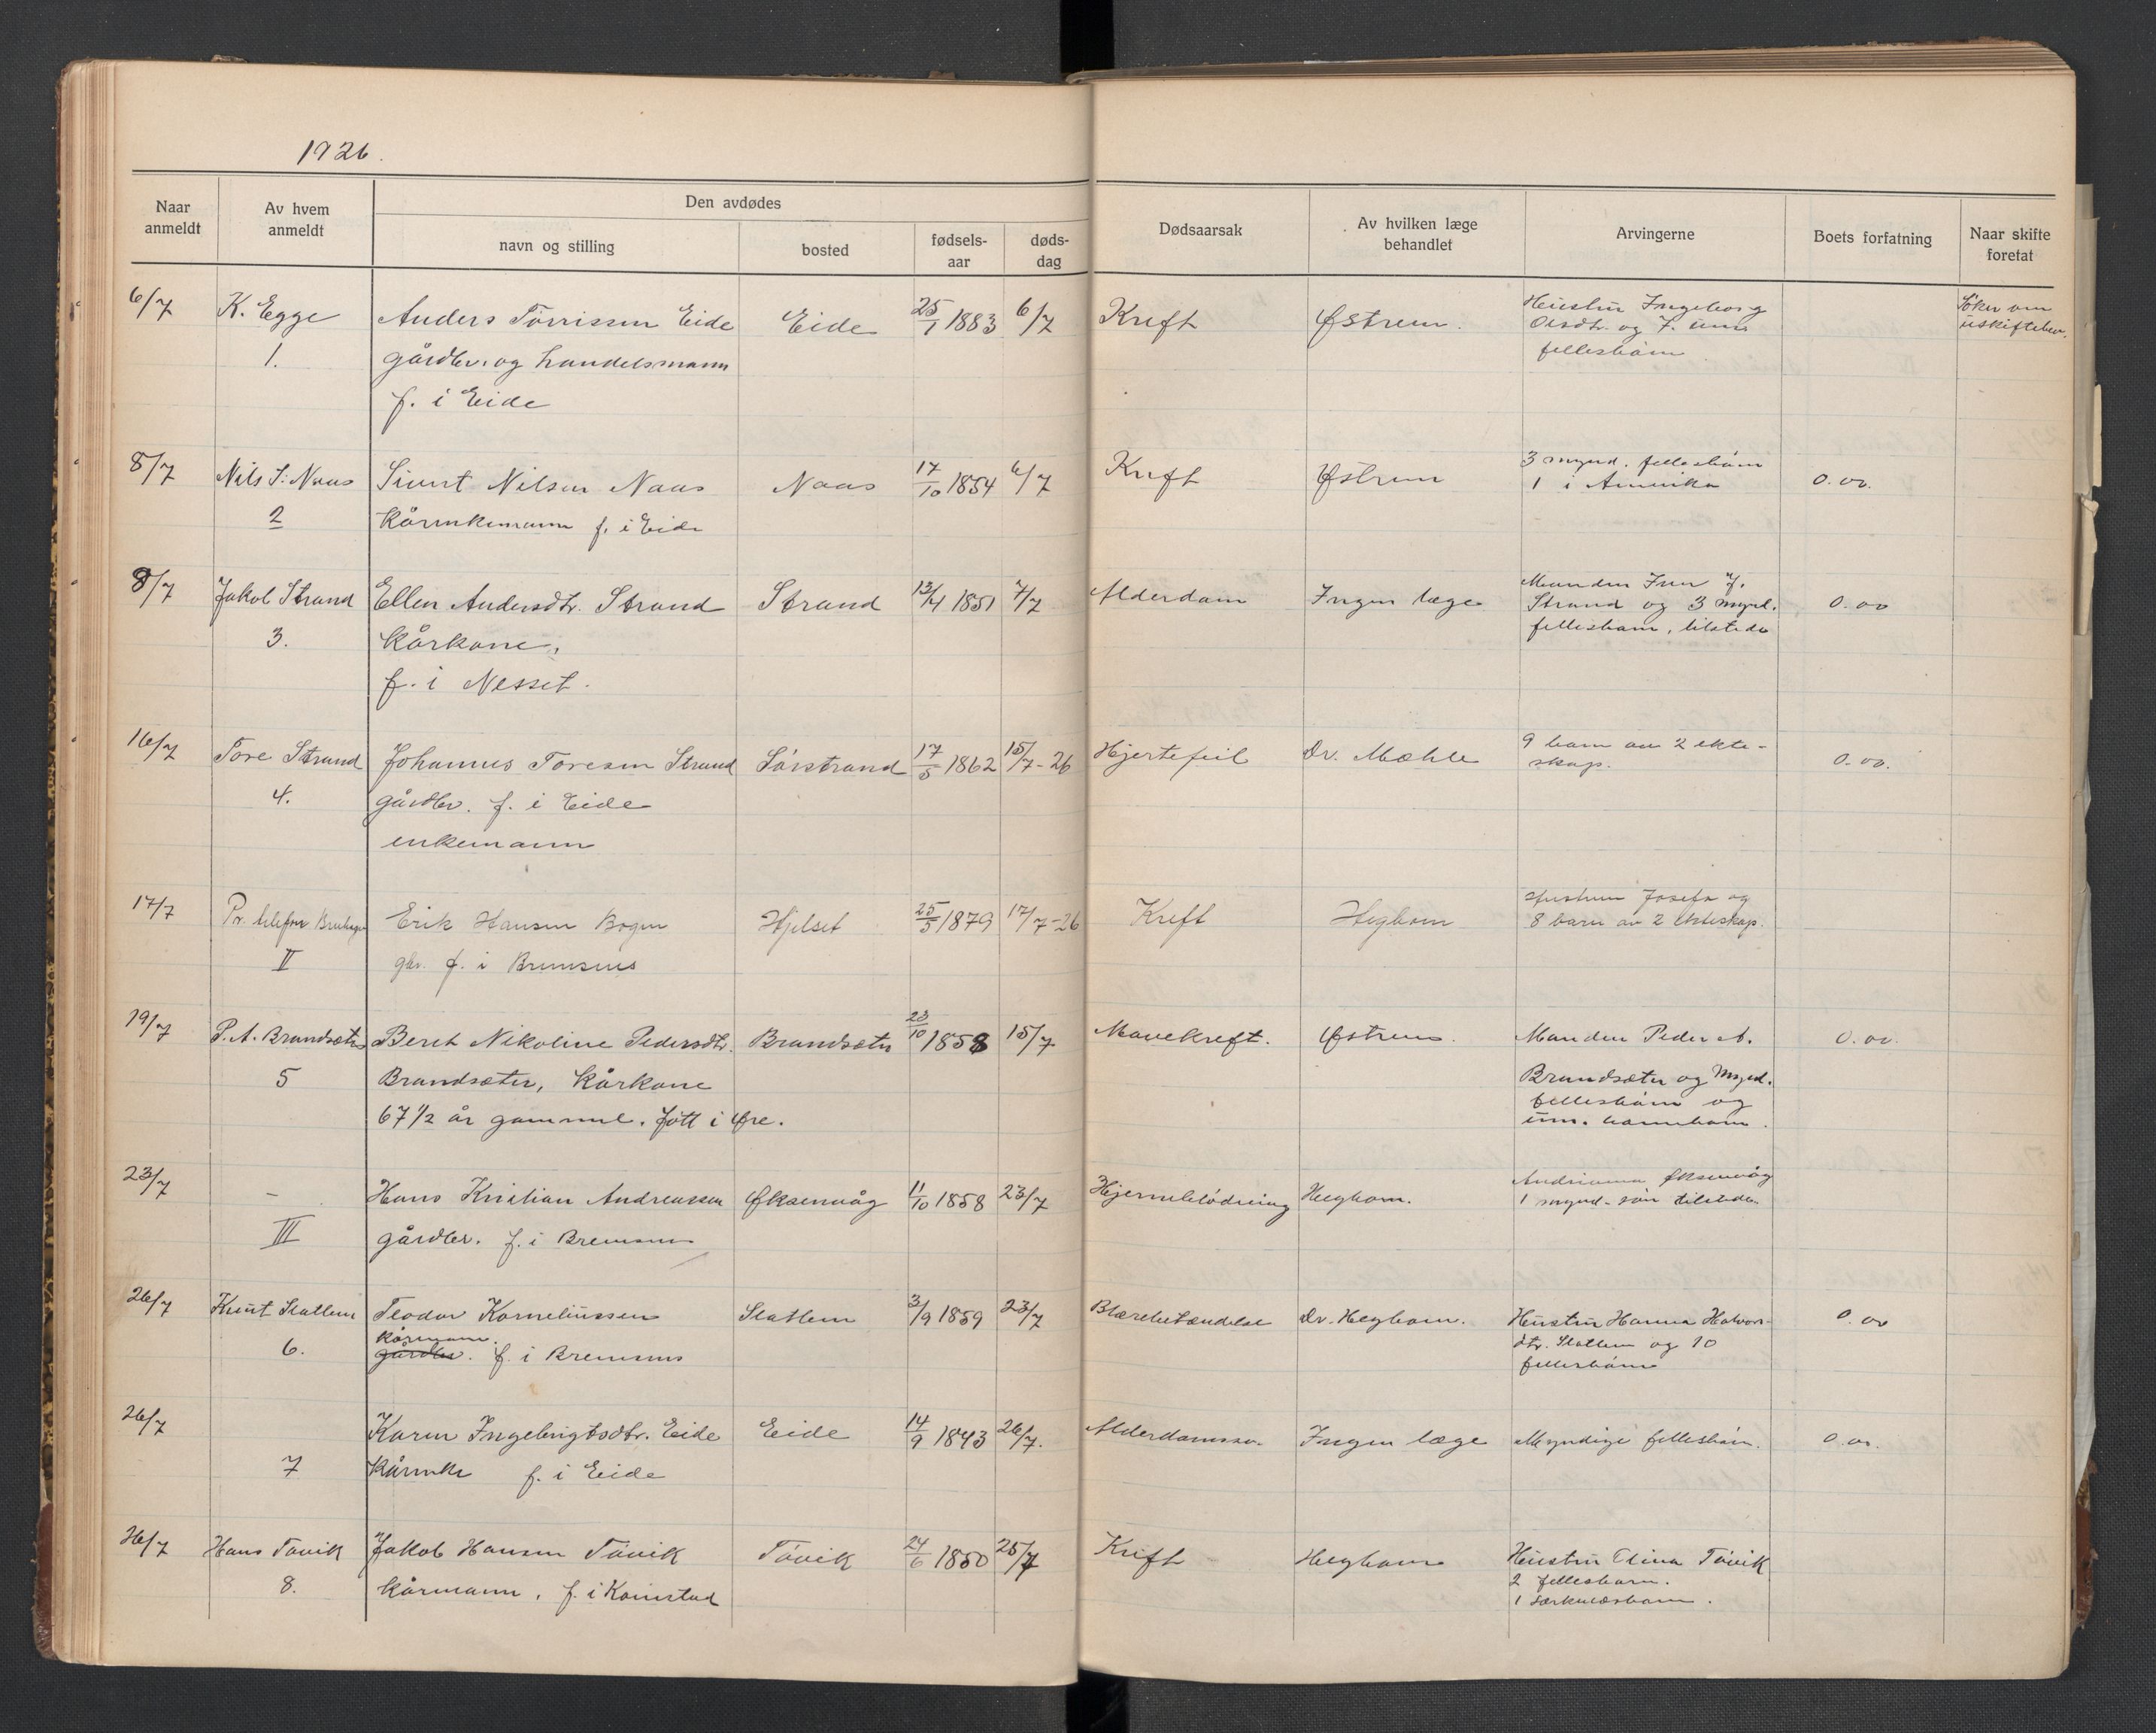 1926.
Naar anmeldt
Av hvem anmeldt
Den avdødes
navn og stilling
bosted
fødsels-aar
døds-dag
Dødsaarsak
Av hvilken læge behandlet
Arvingerne
Boets forfatning
Naar skifte foretat
6/7 K. Egge Anders Törrissen Eide Eide 25/1 1883 6/7 Kreft Østrem. Hustru Ingeborg Søker om
1. gårdbr. og handelsmann Olsdtr. og 7 um. uskiftebev.
f. i Eide fellesbarn
8/7 Nils S. Naas Sivert Nilsen Naas Naas 17/10 1854 6/7 Kreft Østrem 3 mynd. fellesbarn 0.00.
2 Kårenkemann f. i Eide 1 i Amerika
8/7 Jakob Strand Ellen Andersdtr. Strand Strand 13/4 1851 7/7 Alderdom Ingen læge Manden Iver J. 0.00
3. Kårkone, Strand og 3 mynd.
f. i Nesset. fellesbarn, tilstede
16/7 Tore Strand Johannes Toresen Strand Sörstrand 17/5 1862 15/7-26 Hjertefeil Dr. Mæhle 9 barn av 2 ekte- 0.00.
4. gårdbr. f. i Eide skap.
enkemann
17/7 Pr. telefon Bruhagen Erik Hansen Bogen Hjelset 25/5 1879 17/7-26 Kreft Hegbom Hustrun Josefa og
II gbr. f. i Bremsnes 8 barn av 2 ekteskap.
19/7 P. A. Brandsæter Beret Nikoline Pedersdtr. Brandsæter 23/10 1858 15/7 Mavekreft. Østrem. Manden Peder A. 0.00.
5 Brandsæter, Kårkone Brandsæter og mynd.
67 1/2 år gammel. fött i Øre. fellesbarn og
um. barnebarn.
23/7 - Hans Kristian Andreassen Øksenvåg 11/10 1858 23/7 Hjerneblödning Hegbom. Andrianna Øksenvåg
III gårdbr. f. i Bremsnes 1 mynd. sön tilstede
26/7 Knut Slatlem Teodor Korneliussen Slatlem 3/9 1859 23/7 Blærebetændelse Dr. Hegbom. Hustru Hanna Halvors- 0.00
6. kårmann. gårdbr. f. i Bremsnes dtr. Slatlem og 10
fellesbarn
26/7 Karen Ingebrigtsdtr. Eide Eide 14/9 1843 26/7. Alderdomssv. Ingen læge Myndige fellesbarn. 0.00.
7 Kårenke f. i Eide
26/7 Hans Tövik Jakob Hansen Tövik Tövik 24/6 1850 25/7 Kreft Hegbom Hustru Elina Tövik
8. kårmann. f. i Kornstad 2 fellesbarn.
1 særkuldsbarn.